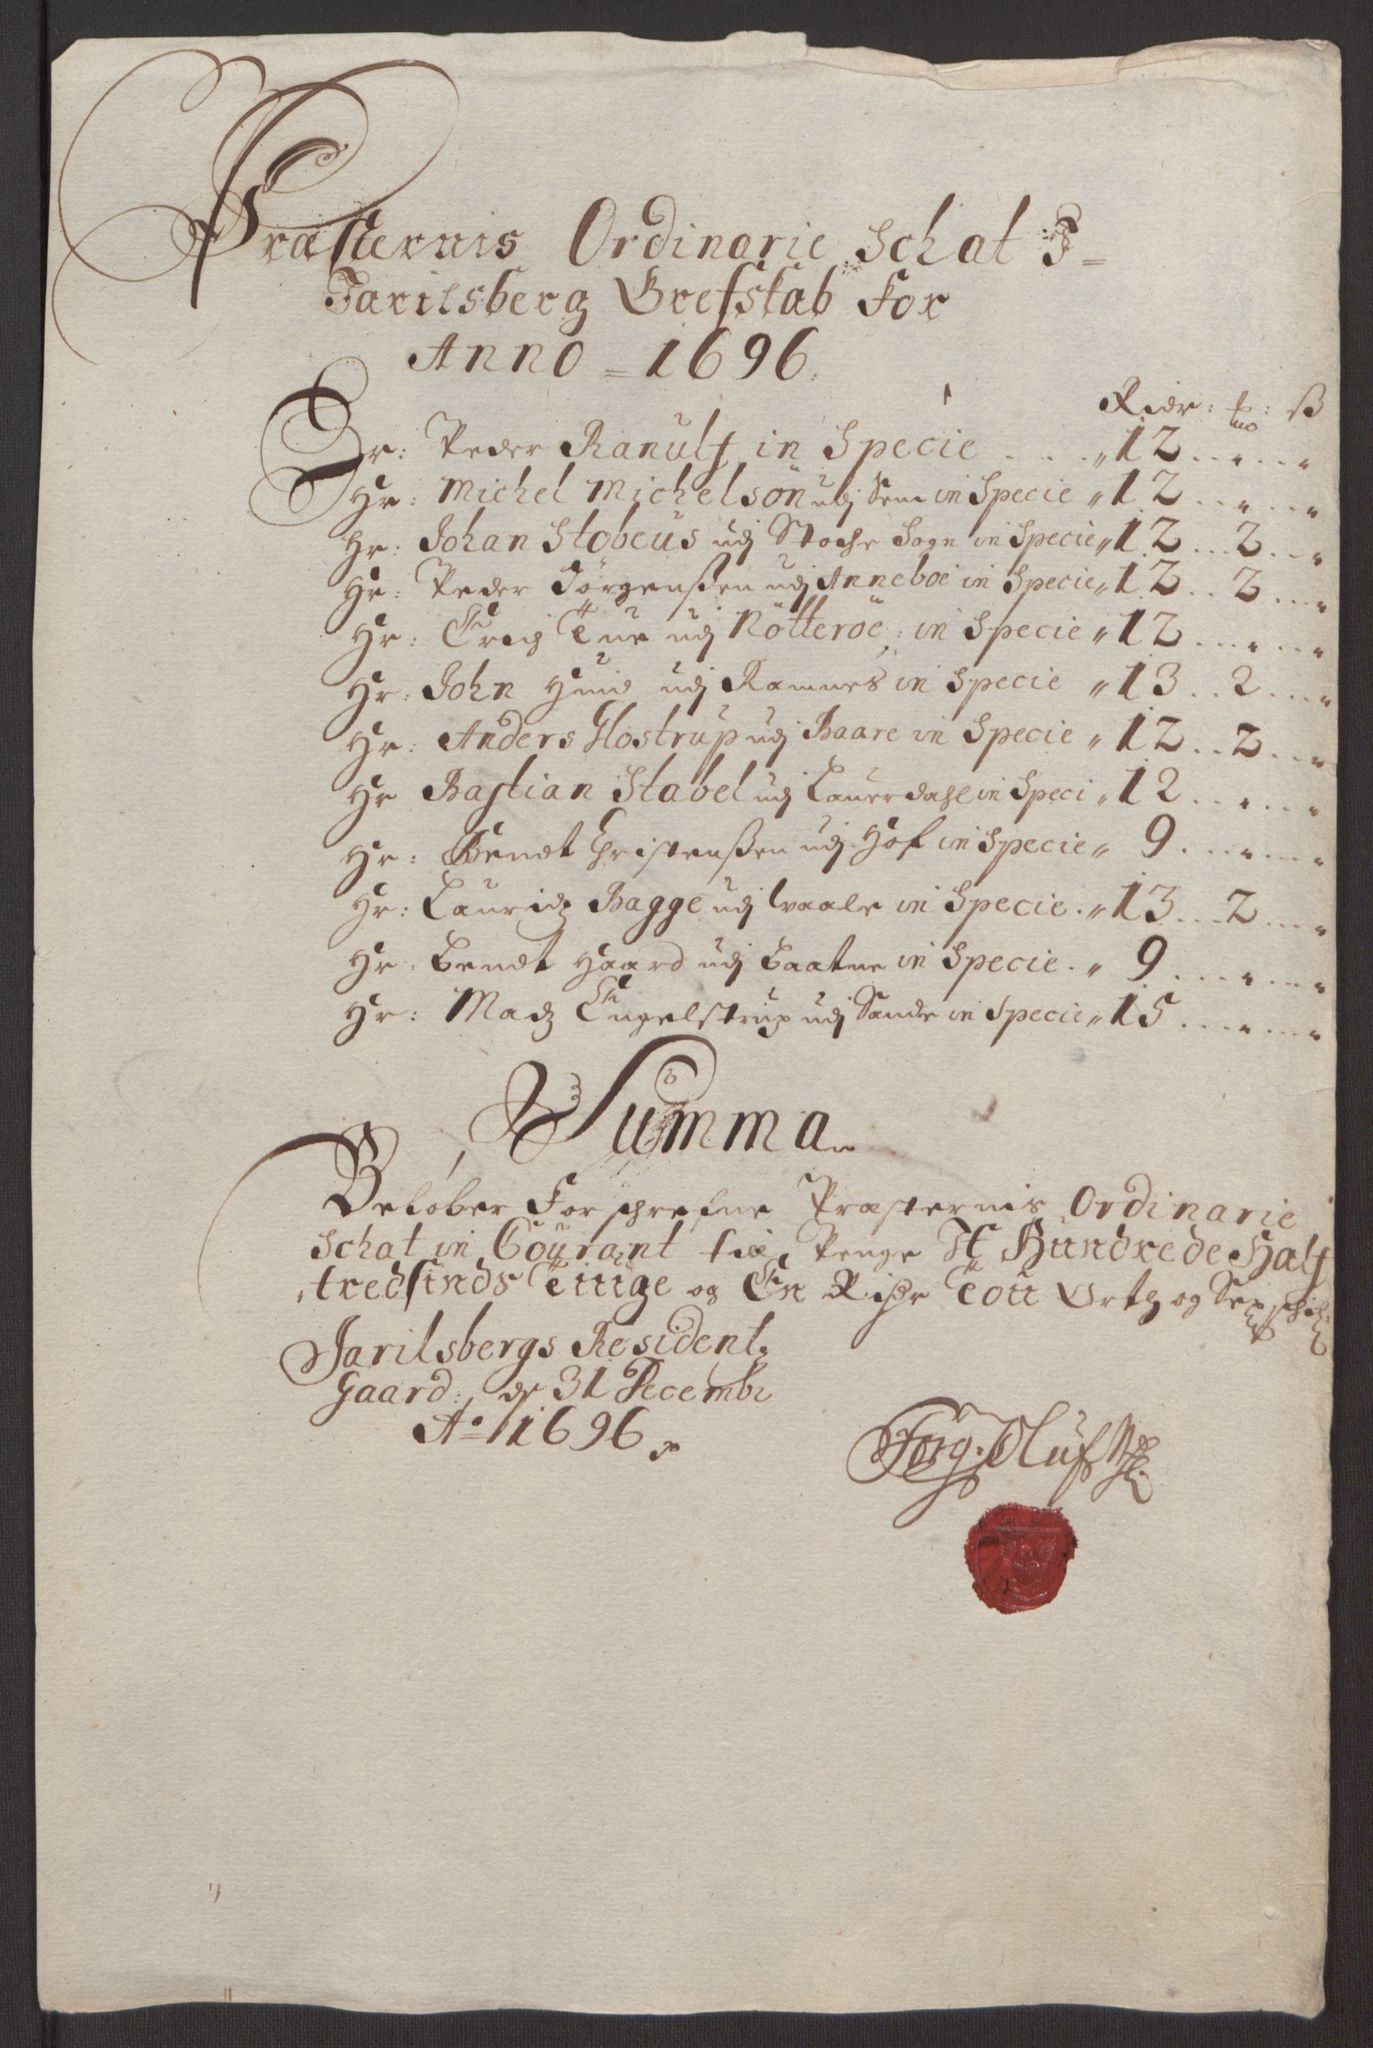 Præsternis Ordinarie Schat I
Jarilsberg Grefskab For
Anno = 1696.
Rixdr: ß
Hr: Peder Ranulf in Specie . . . „ 12 . . „ . . „
Hr: Michel Michelsön udj Sem in Specie „ 12 . . „ . . „
Hr: Johan Stobeus udj Stoche Sogn in Specie „ 12 . . 2 . . „
Hr: Peder Jörgenßen udj Anneboe in Specie „ 12 . . 2 . . „
Hr: Erich Tue udj Nötteröe, in Specie „ 12 . . „ . . „
Hr: John Huid udj Ramnes in Specie „ 13 . . 2 . . „
Hr: Anders Glostrup udj Baare in Specie „ 12 . . 2 . . „
Hr Bastian Stabel udj Lauerdahl in Speci „ 12 . . „ . . „
Hr: Bendt Christenßen udj Hof in Specie „ 9 . . „ . . „
Hr: Lauridz Bagge udj Waale in Specie . „ 13 . . 2 . . „
Hr: Bendt Haard udj in Specie . „ 9 . . „ . . „
Hr: Madz Engelstrup udj Sande in Specie „ 15 . . „ . . „
Summa
Beløber Forschrefne Præsternis Ordinarie
Schat in Courant Penge Et Hundrede Half
tredsinds Tiuge og En Rixdr Tou Ortz og Sex schil:
Jarilsbergs Resident
Gaard: d 31 Decembr
Ao 1696.
Jørg: Oluf